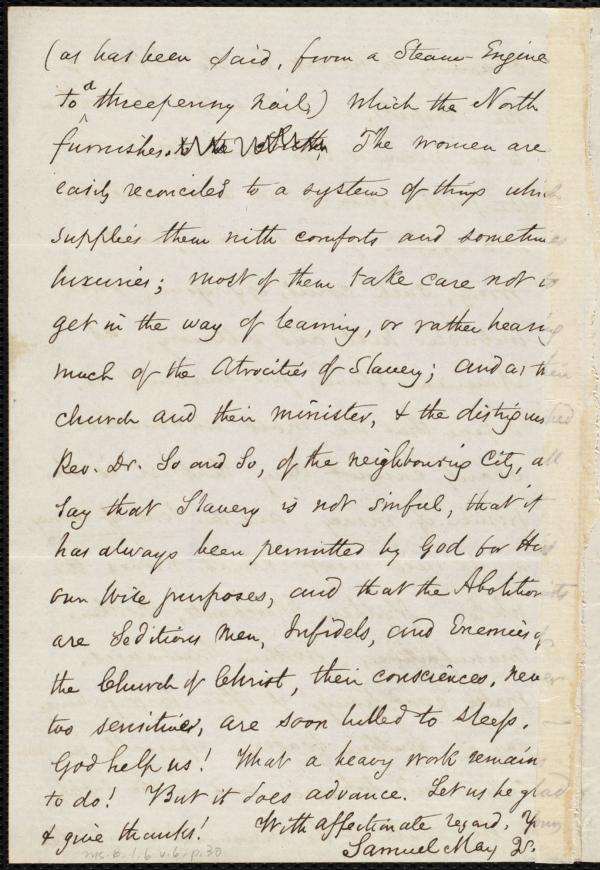 (as has been said, from a Steam-Engine
to a threepenny nail,) which the North
furnishes. The women are
easily reconciled to a system of things which
supplies them with comforts and sometimes
luxuries; most of them take care not to
get in the way of learning, or rather hearing
much of the atrocities of Slavery; and as their
church and their minister, & the distinguished
Rev. Dr. So and So, of the neighbouring City, all
say that Slavery is not sinful, that it
has always been permitted by God for His
own wise purposes, and that the Abolitionists
are Seditious men, Infidels, and Enemies of
the Church of Christ, their consciences, never
too sensitive, are soon lulled to sleep.
God help us! What a heavy work remains
to do! But it does advance. Let us be glad
& give thanks! With affectionate regard, Yours
Samuel May Jr.
Ms. B.1.6 v.6, p.30